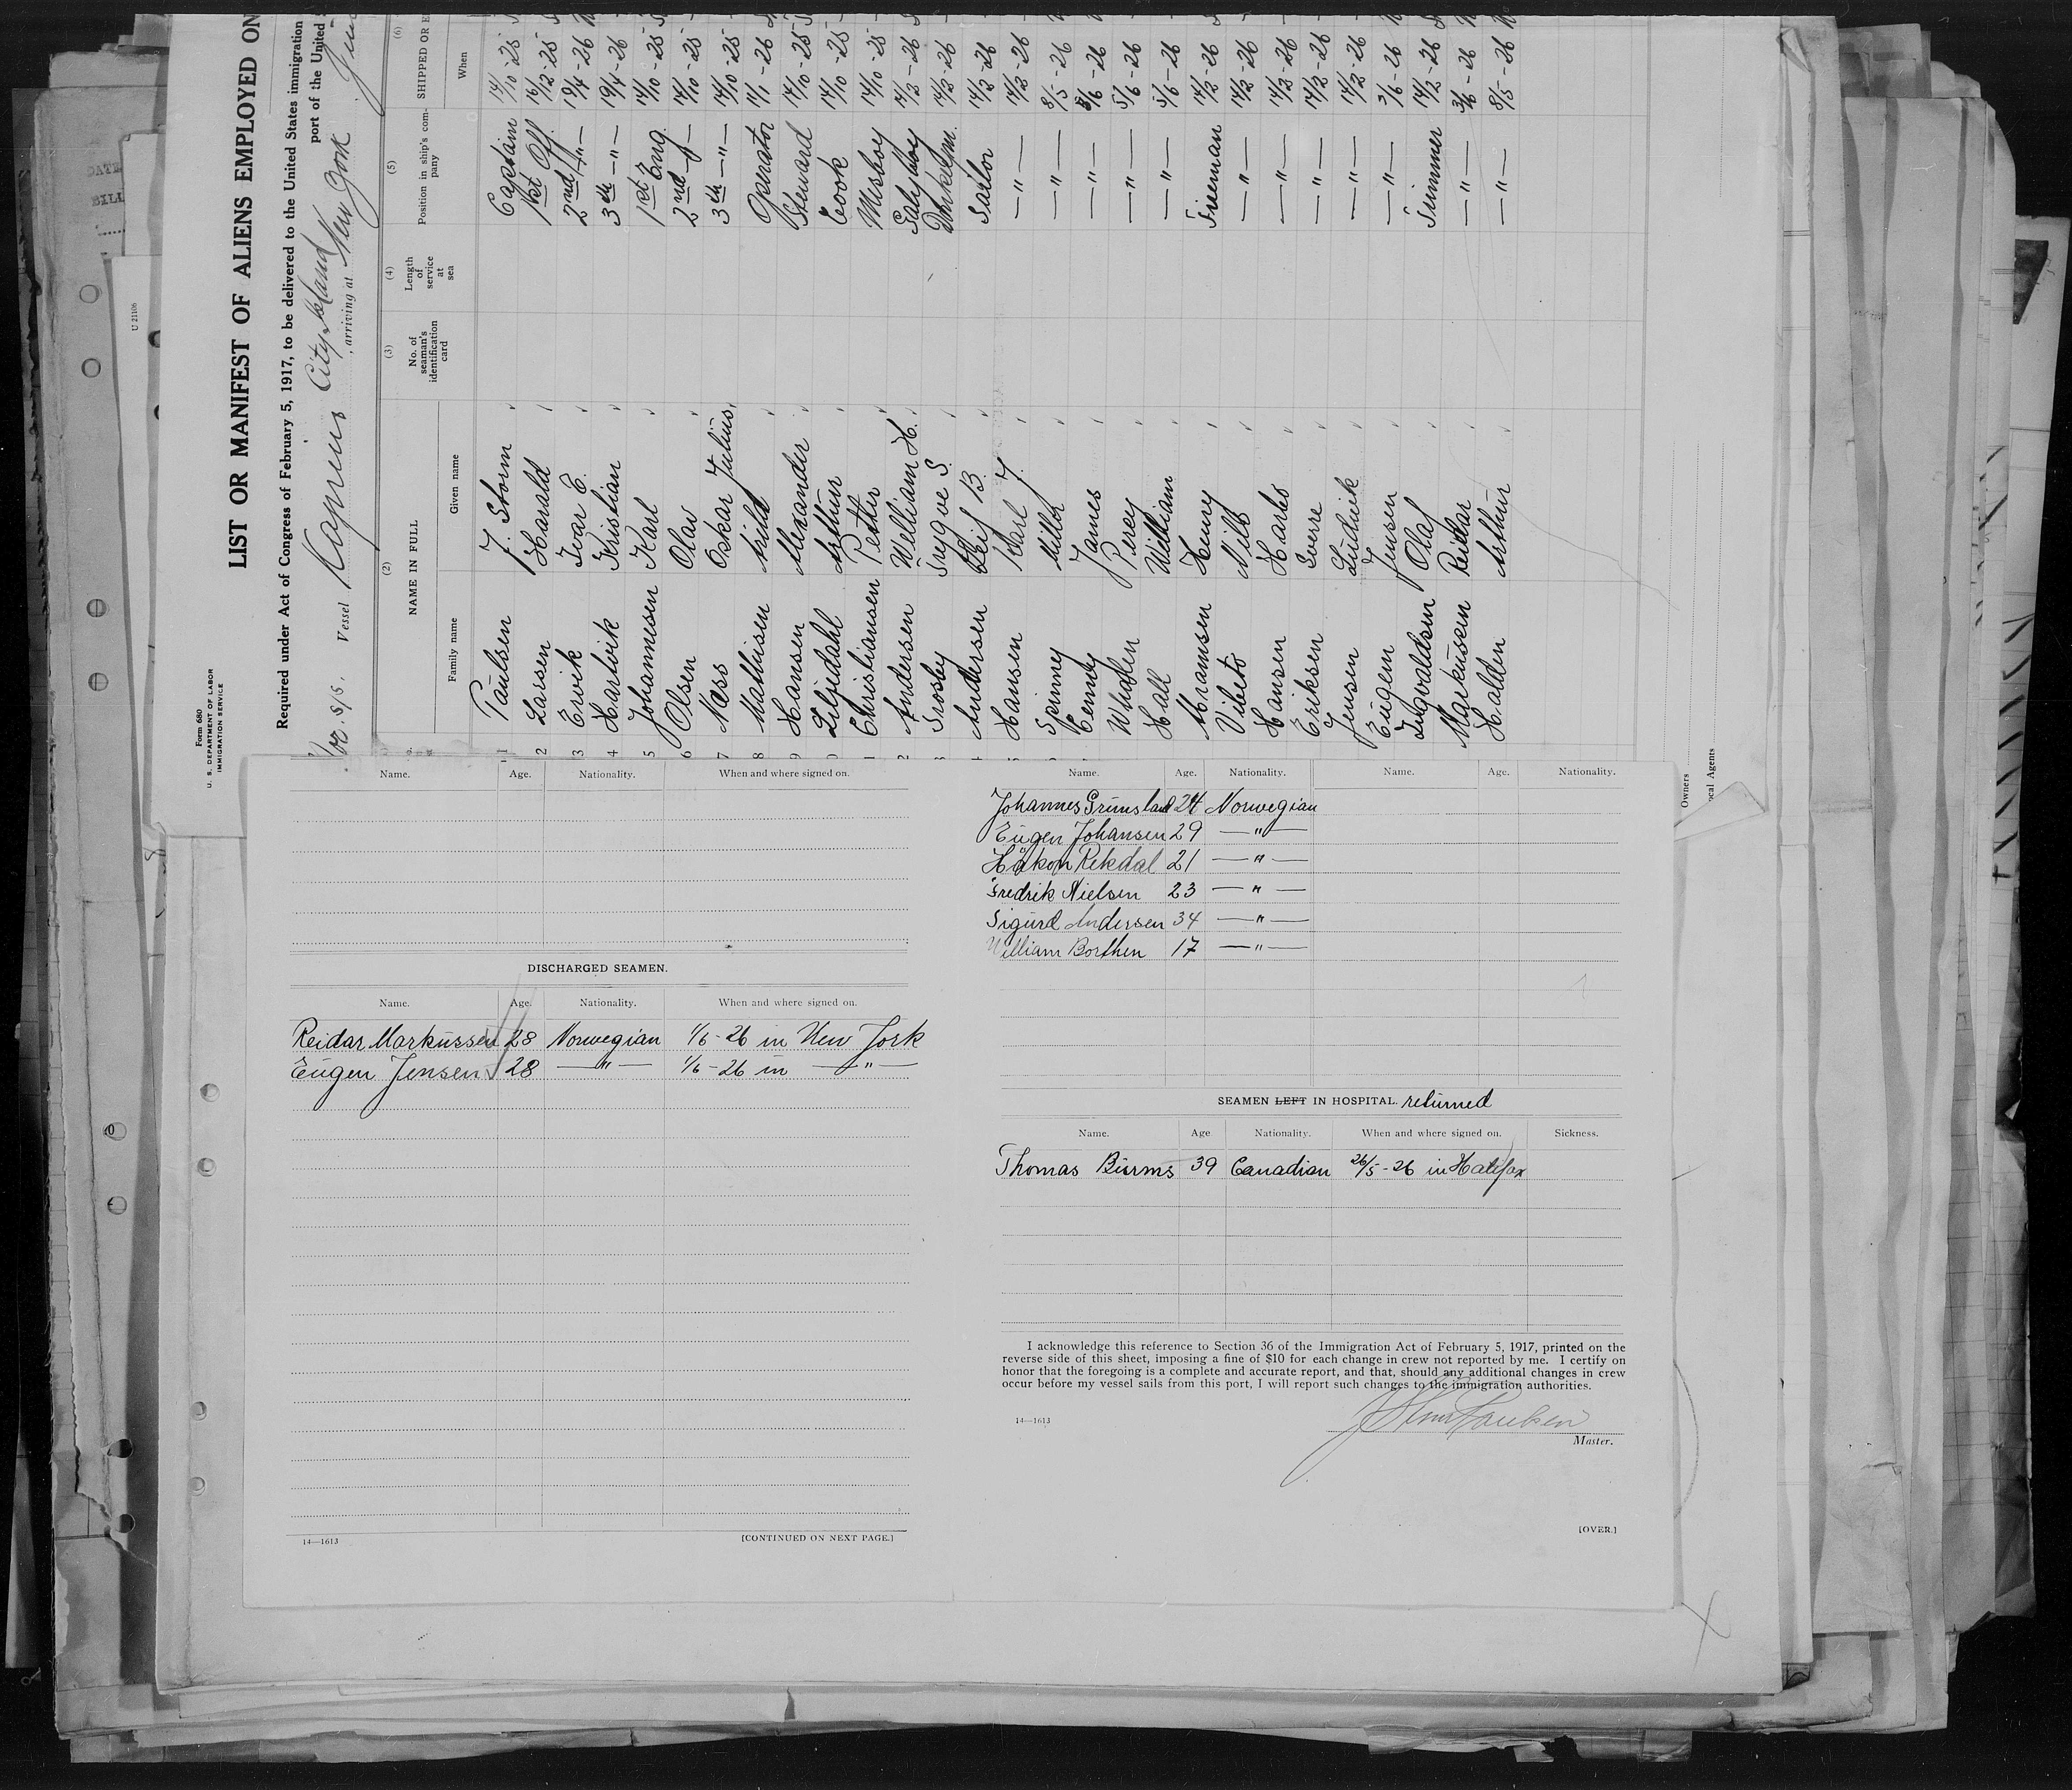 Form 680
U. S. DEPARTMENT OF LABOR
IMMIGRATION SERVICE
LIST OR MANIFEST OF ALIENS EMPLOYED ON
Required under Act of Congress of February 5, 1917, to be delivered to the United States immigration
port of the United
Vessel City Island, arriving at New York
(2) (3) (4) (5) (6)
NAME IN FULL No. of seaman's identification card Length of service at sea Position in ship's company SHIPPED OR E
Family name Given name When
1 Paulsen J. Storm Captain 14/10-25
2 Larsen Harald 1st Off 16/12-25
3 Ervik Ivar E. 2nd -"- 19/4-26
4 Hartvik Kristian 3th -"- 19/4-26
5 Johannesen Karl 1st Eng. 14/10-25
6 Olsen Olav 2nd -"- 14/10-25
7 Næss Oskar Julius 3th -"- 14/10-25
8 Mathisen Arild Operator 14/1-26
9 Hansen Alexander Steward 14/10-25
0 Liljedahl Arthur Cook 14/10-25
1 Christiansen Petter Messboy 14/10-25
2 Andersen William H. 14/2-26
3 Trygve S. Donkeym. 14/2-26
4 Andersen Leif B. Sailor 14/2-26
Hansen Karl J. -"- 14/2-26
Spinney -"- 8/5-26
James -"- 5/6-26
Percy -"- 5/6-26
Hall William -"- 5/6-26
Henry Fireman 14/2-26
Nils -"- 14/2-26
Hansen -"- 14/2-26
Eriksen Sverre -"- 14/2-26
Jensen Ludvik -"- 14/2-26
Eugen Jensen -"-
Ingvaldsen Olaf Trimmer 14/2-26
Markussen Reidar -"-
Halden Arthur -"- 8/5-26
Owners
ocal Agents
U 21106
Name. Age. Nationality. When and where signed on.
DISCHARGED SEAMEN.
Name. Age. Nationality. When and where signed on.
Reidar Markussen 28 Norwegian 1/6-26 in New York
Eugen Jensen 28 -"- 1/6-26 in -"-
14—1613 [CONTINUED ON NEXT PAGE.]
Name. Age. Nationality. Name. Age. Nationality.
Johannes Grimsland 24 Norwegian
Eugen Johansen 29 -"-
Håkon Rekdal 21 -"-
Fredrik Nielsen 23 -"-
Sigurd Andersen 34 -"-
William Borthen 17 -"-
SEAMEN LEFT IN HOSPITAL. returned
Name. Age Nationality. When and where signed on. Sickness.
Thomas Burms 39 Canadian 26/5-26 in Halifax
I acknowledge this reference to Section 36 of the Immigration Act of February 5, 1917, printed on the
reverse side of this sheet, imposing a fine of $10 for each change in crew not reported by me. I certify on
honor that the foregoing is a complete and accurate report, and that, should any additional changes in crew
occur before my vessel sails from this port, I will report such changes to the immigration authorities.
14—1613
J Storm Paulsen
Master.
[OVER.]